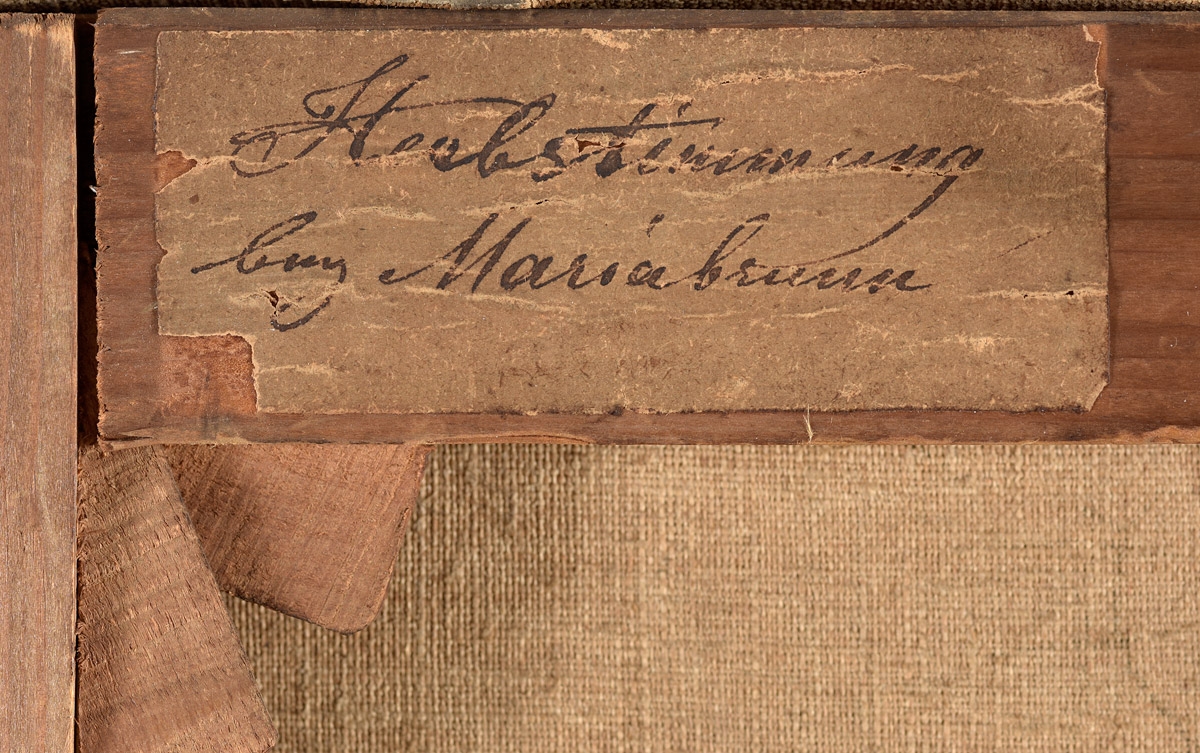 Herbstimmung
bey Mariabrunn